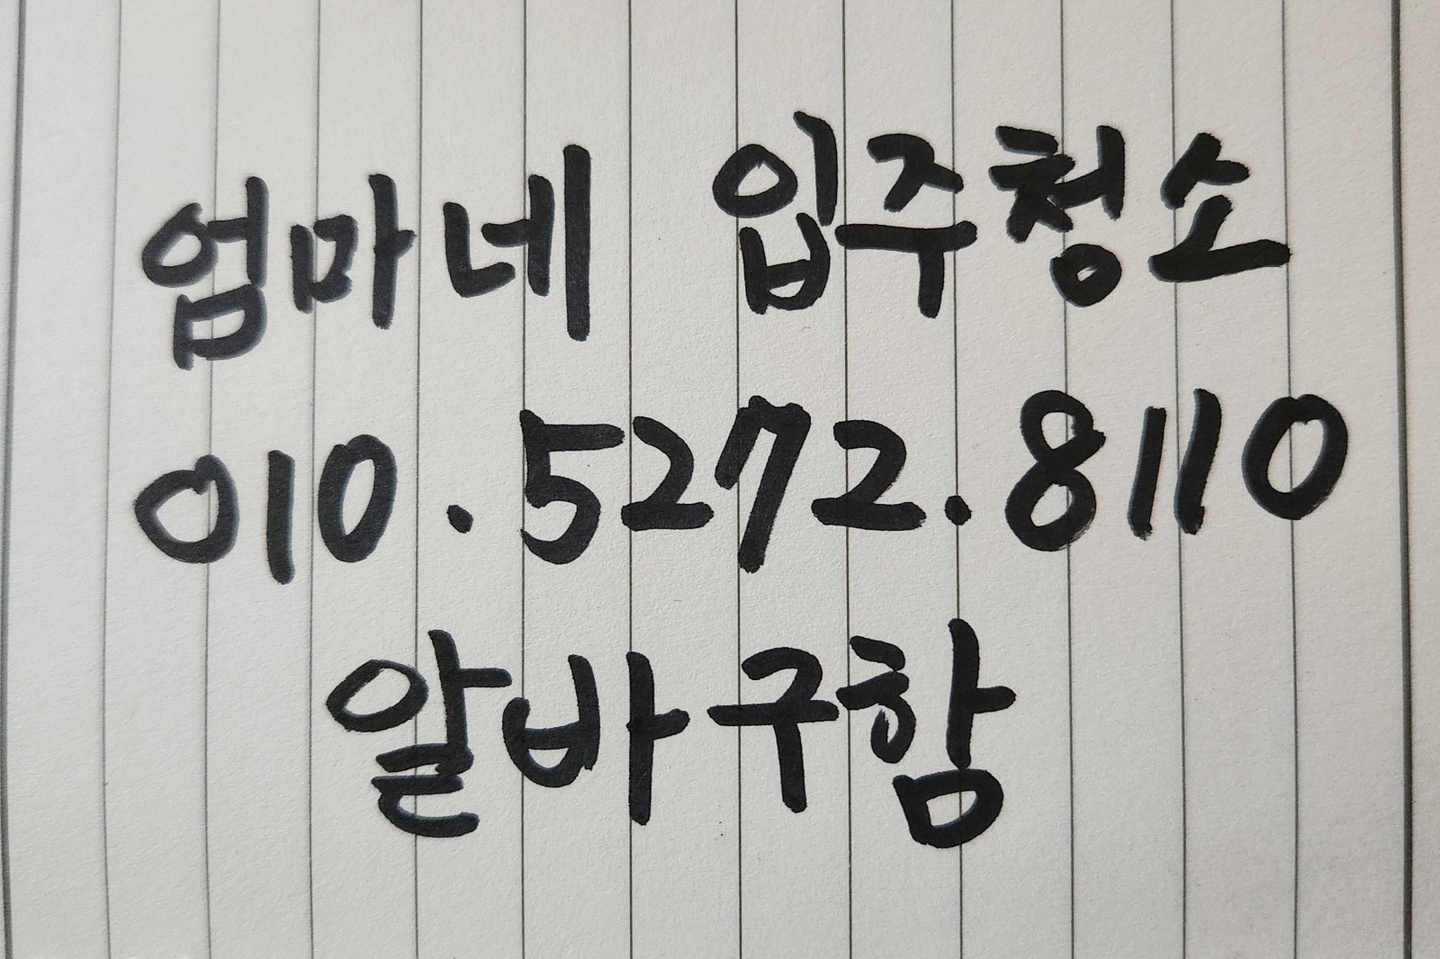 엄마네 입주청소
010.5272.8110
알바구함